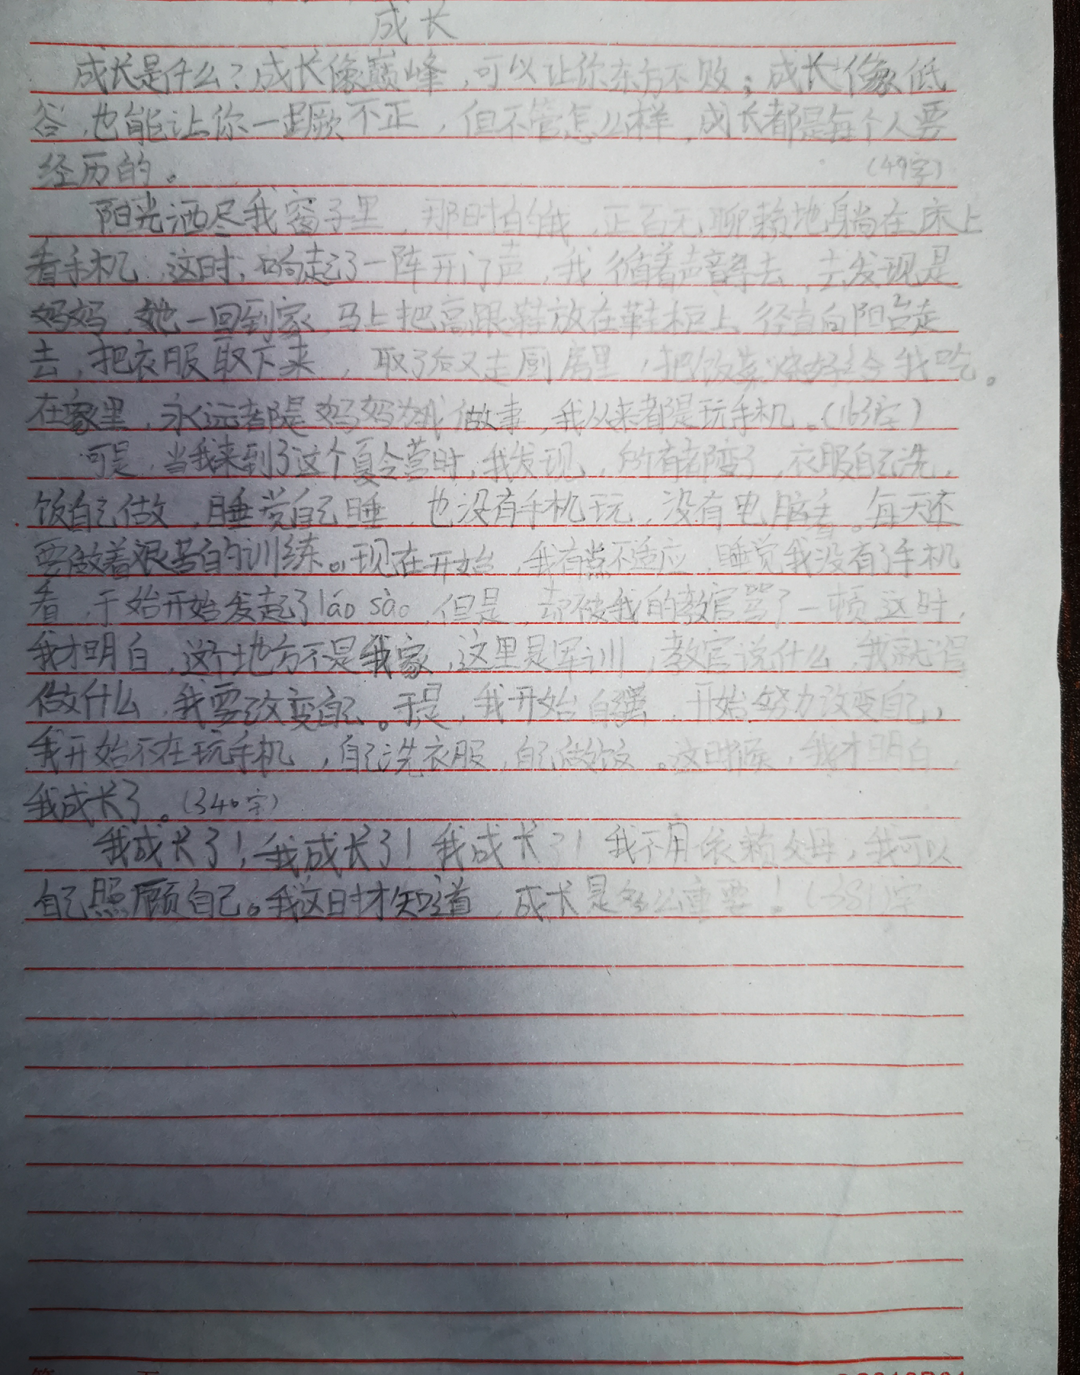 成长
成长是什么？成长像巅峰，可以让你东方不败；成长像低
谷，也能让你一蹶不正，但不管怎么样，成长都是每个人要
经历的。（49字）
阳光洒尽我窗子里，那时的我，正百无聊赖地躺在床上
看手机，这时，响起了一阵开门声，我循着声音寻去，去发现是
妈妈，她一回到家，马上把高跟鞋放在鞋柜上，径直向阳台走
去，把衣服取下来，取了后又走厨房里，把饭菜烧好给我吃。
在家里，永远都是妈妈为我做事，我从来都是玩手机。（163字）
可是，当我来到了这个夏令营时，我发现，所有都变了，衣服自己洗，
饭自己做，睡觉自己睡，也没有手机玩，没有电脑看。每天还
要做着很苦的训练。现在开始，我有点不适应，睡觉我没有了手机
看，于始开始发起了láo sāo，但是，却被我的教官骂了一顿，这时，
我才明白，这个地方不是我家，这里是军训，教官说什么，我就得
做什么，我要改变自己。于是，我开始自强，开始努力改变自己，
我开始不在玩手机，自己洗衣服，自己做饭。这时候，我才明白，
我成长了。（340字）
我成长了！我成长了！我成长了！我不用依赖父母，我可以
自己照顾自己。我这时才知道，成长是多么重要！（381字